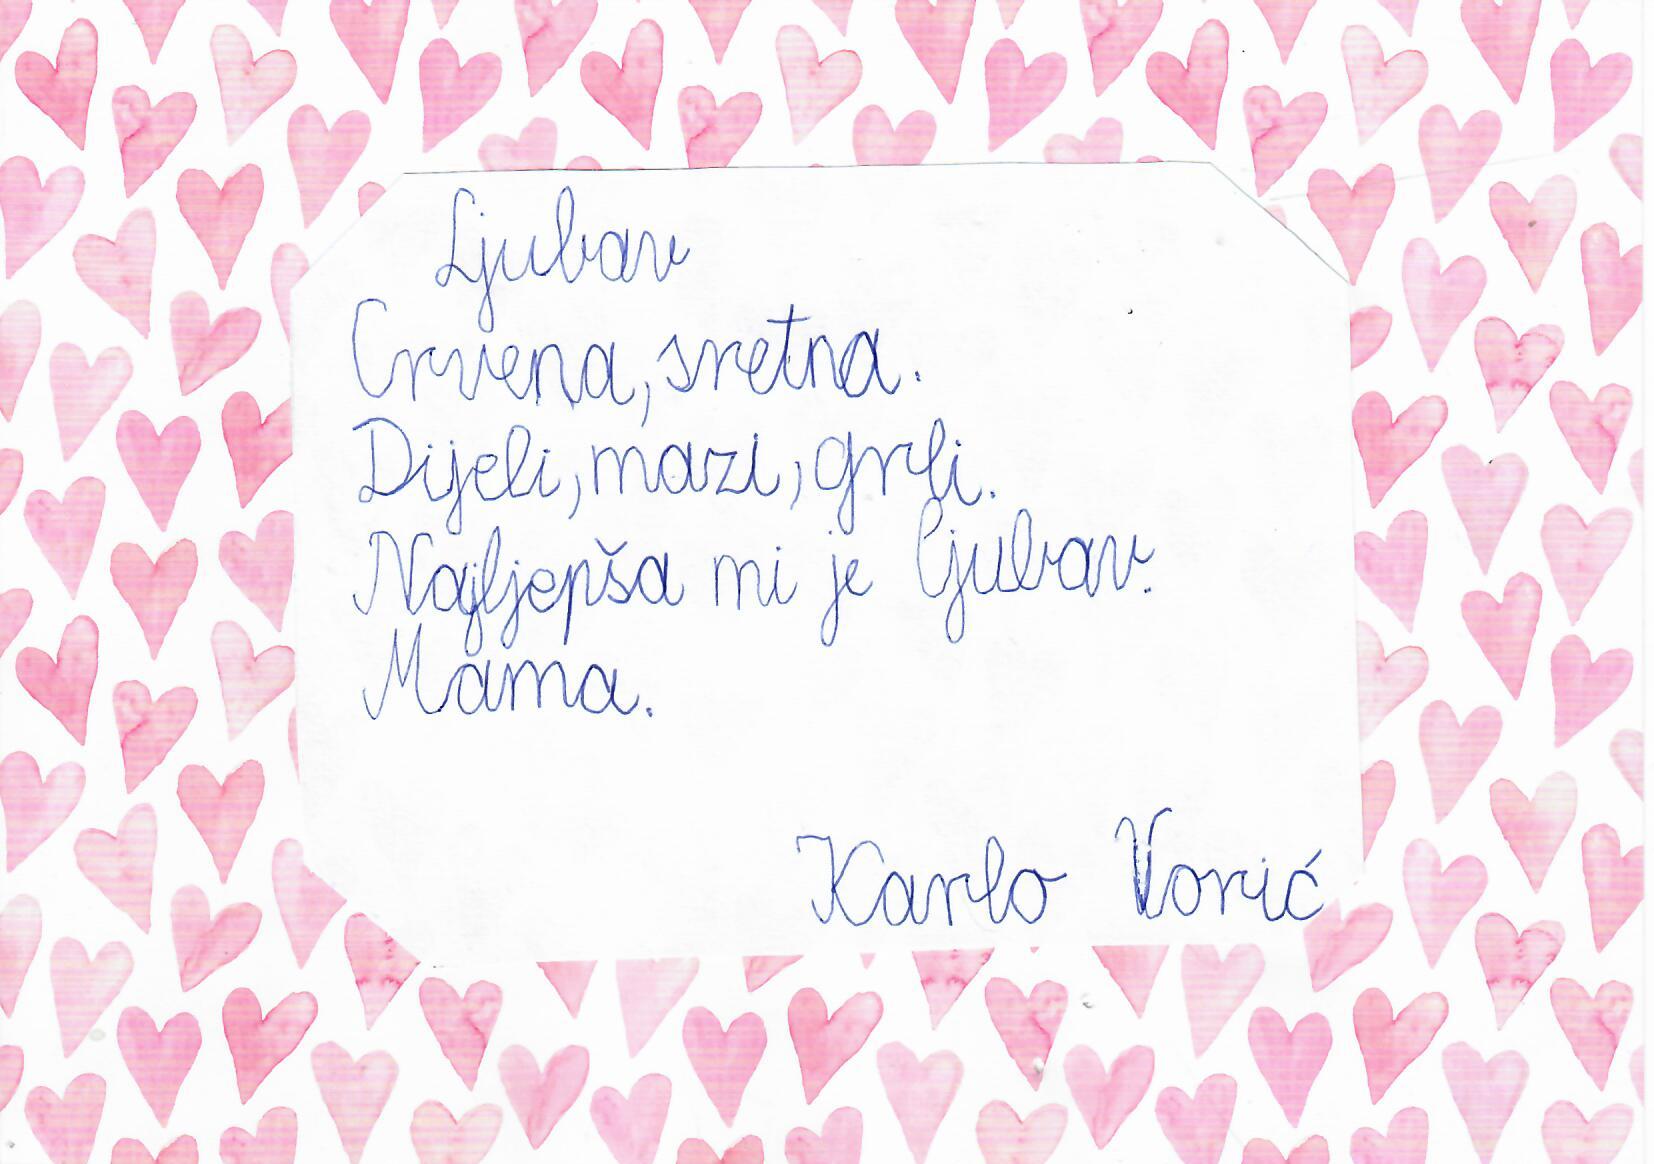 Ljubav
Crvena, sretna.
Dijeli, mazi, grli.
Najljepša mi je ljubav.
Mama.
Karlo Vorić